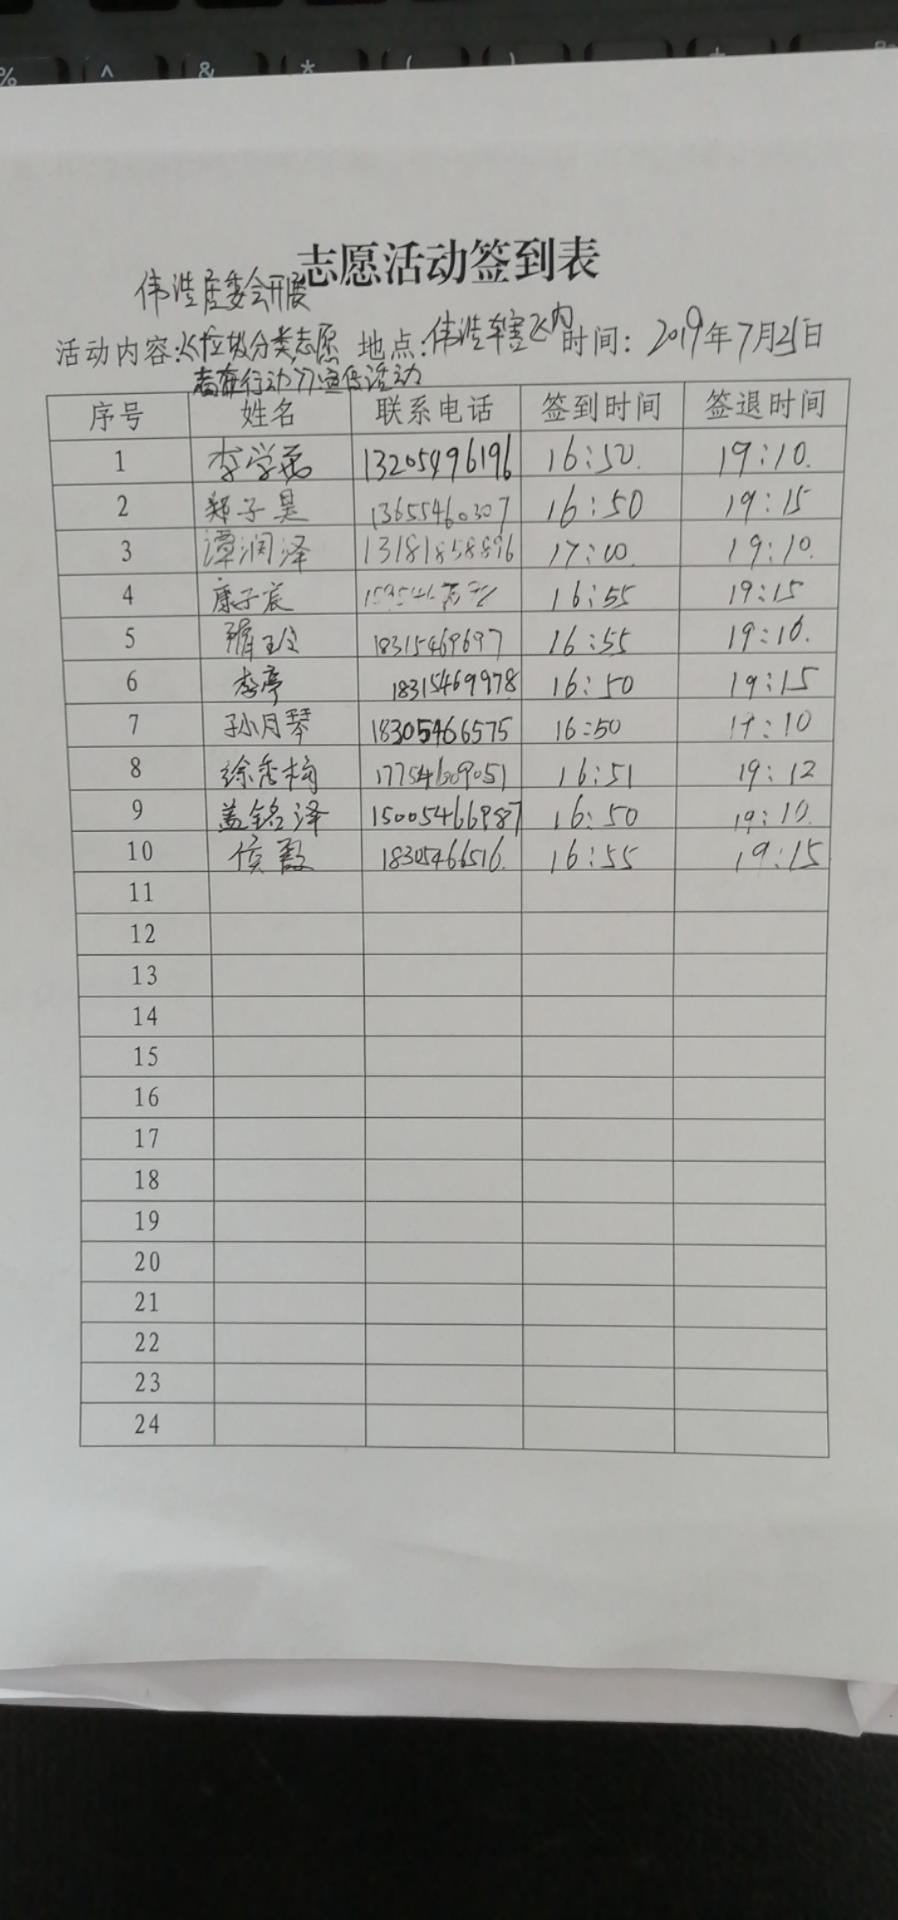 % ^ & * ( )
志愿活动签到表
伟浩居委会开展
活动内容:《垃圾分类志愿 地点:伟浩辖区内 时间: 2019年7月21日
者在行动》宣传活动
序号 姓名 联系电话 签到时间 签退时间
1 李学 13205496196 16:50. 19:10.
2 郑子昊 13655460307 16:50 19:15
3 谭润泽 13181858896 17:00. 19:10.
4 康子宸 16:55 19:15
5 18315469697 16:55 19:10.
6 李亭 18315469978 16:50 19:15
7 孙月琴 18305466575 16:50 19:10
8 徐秀梅 17754609051 16:51 19:12
9 盖铭泽 15005466987 16:50 19:10.
10 侯霞 18305466516. 16:55 19:15
11
12
13
14
15
16
17
18
19
20
21
22
23
24